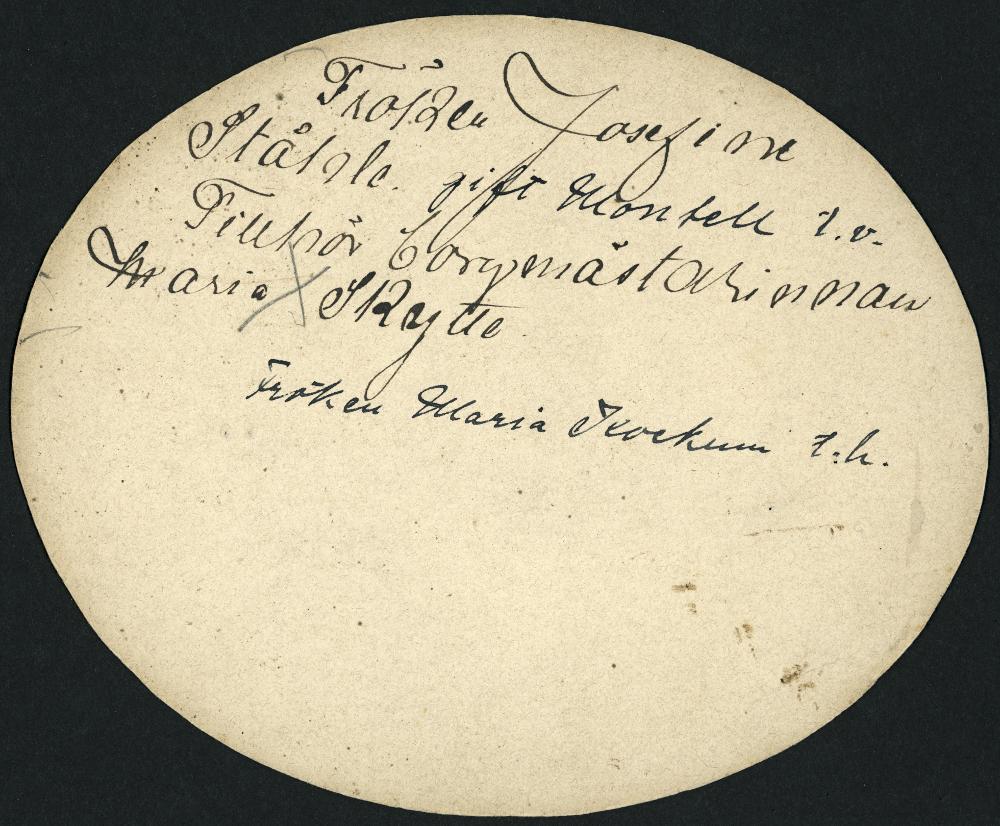 Fröken Josefine
Ståhle. gift Montell t.v.
Tillhör borgmästarinnan
Maria Skytte
Fröken Maria Kockum t.h.